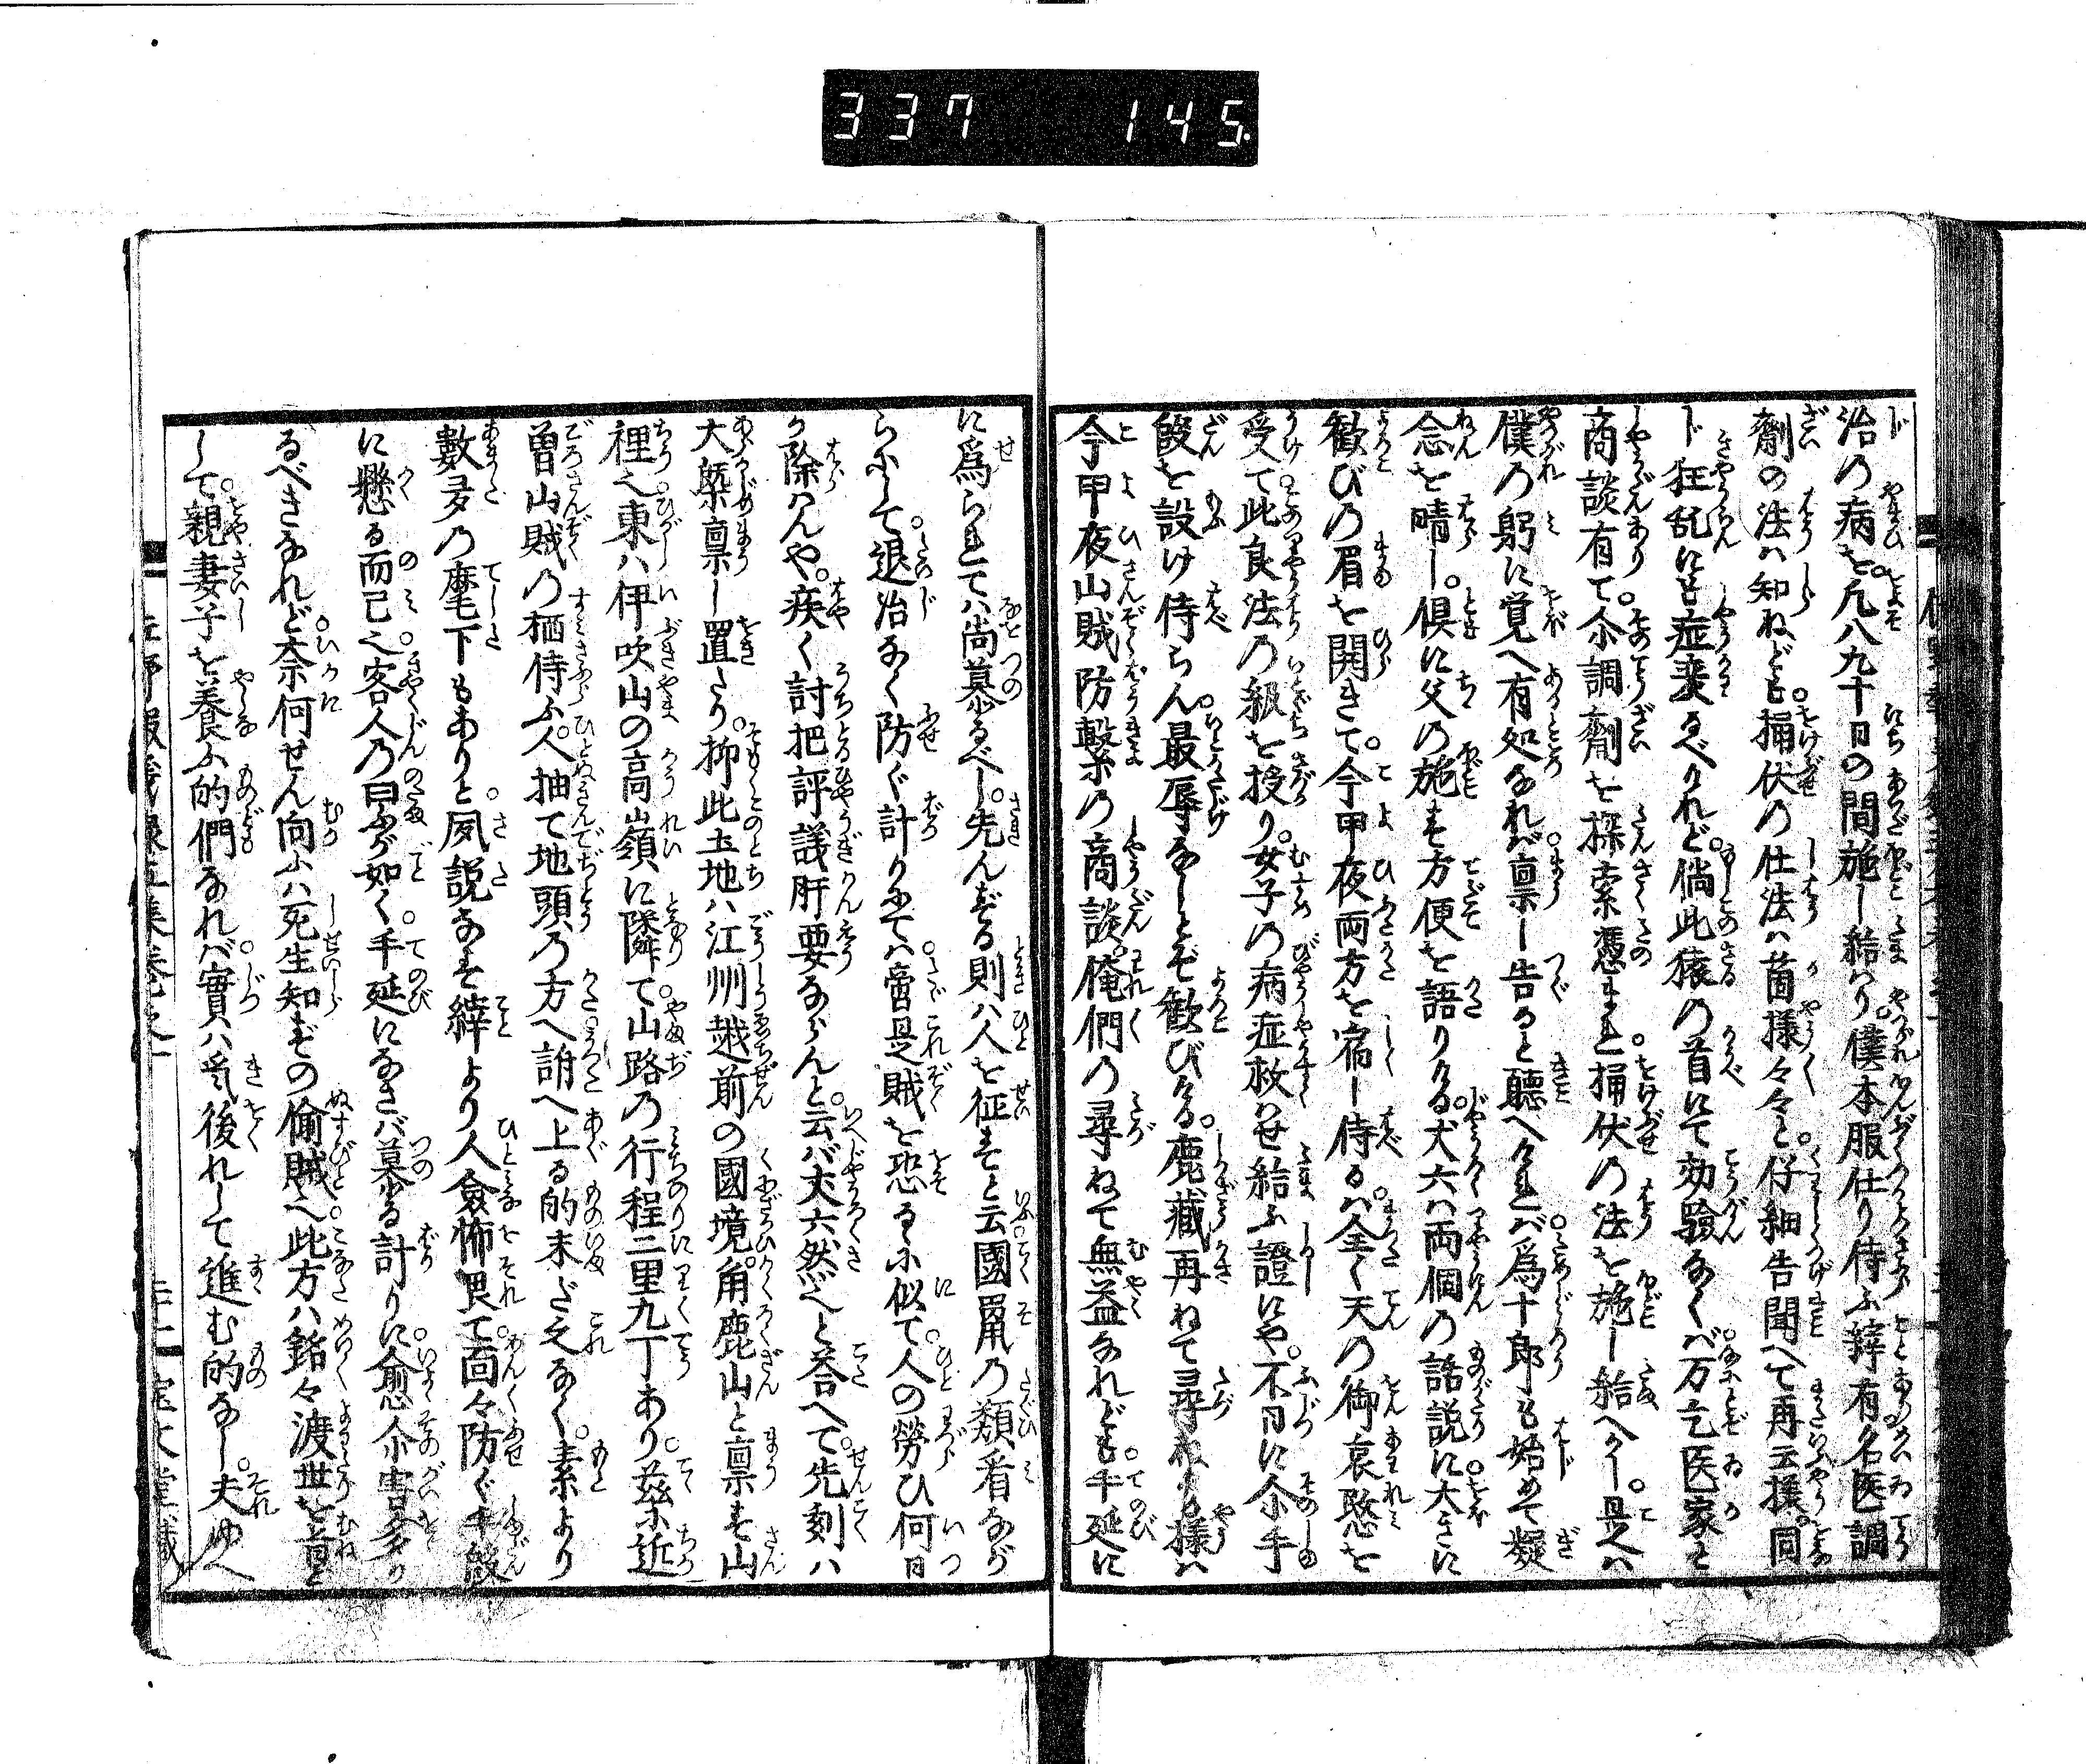 337 145.
治の病を。凡八九十日の間施し給へり。僕本服仕り侍ふ。縡有名医調
劑の法ハ知ねども。桶伏の仕法ハ箇様々々と。仔細告聞へて再云様。同
ド狂乱にも症寔るべけれど。倘此猿の首にて効驗なくバ万乞医家と
商談有て。尓調劑を探索憑まれ。桶伏の法を施し給へかし。是ハ
僕の躬に覚へ有処なれバ。禀し告ると聽へけれバ。爲十郎も始めて凝
念を晴し。倶に父の施せし方便を語りける。丈六ハ両個の話説に。大きに
歓びの眉を開きて。今甲夜両方を宿し侍るハ。全く天の御哀愍を
受て。此良法の級を授り。女子の病症救ハせ給ふ證にや。不日に尓手
餿を設け侍らん。最辱なしとぞ歓びける。鹿藏再ねて尋ねける様ハ
今甲夜山賊防繫の商談。俺們の尋ねて無益なれども。手延に
に爲られてハ尚慕るべし。先んずる則ハ人を征すと云。國 の類。看ながら
らふして。退治なく防ぐ計りにてハ。啻是賊を恐るゝに似て。人の勞ひ何日
か除かんや。疾く討把評議肝要ならんと。云バ丈六然りと答へて。先刻ハ
大槩禀し置たり。抑此土地ハ江州越前の國境。角鹿山と禀す山
裡也。東ハ伊吹山の高嶺に隣て。山路の行程二里九丁あり。茲等近
曽山賊の栖侍ふ。人抽て地頭の方へ訴へ上る的未だ之なく。素より
數多の麾下もありと。夙説なす縡より人僉怖畏て。面々防ぐ手段
に懸る而已也。客人の曰ふが如く。手延になさバ慕る計りに。愈尓害多か
るべきなれど。奈何せん向ふハ死生知ずの偸賊也。此方ハ銘々渡世を旨と
して。親妻子を養ふ的們なれバ。實ハ気後れして進む的なし。夫ゆへ